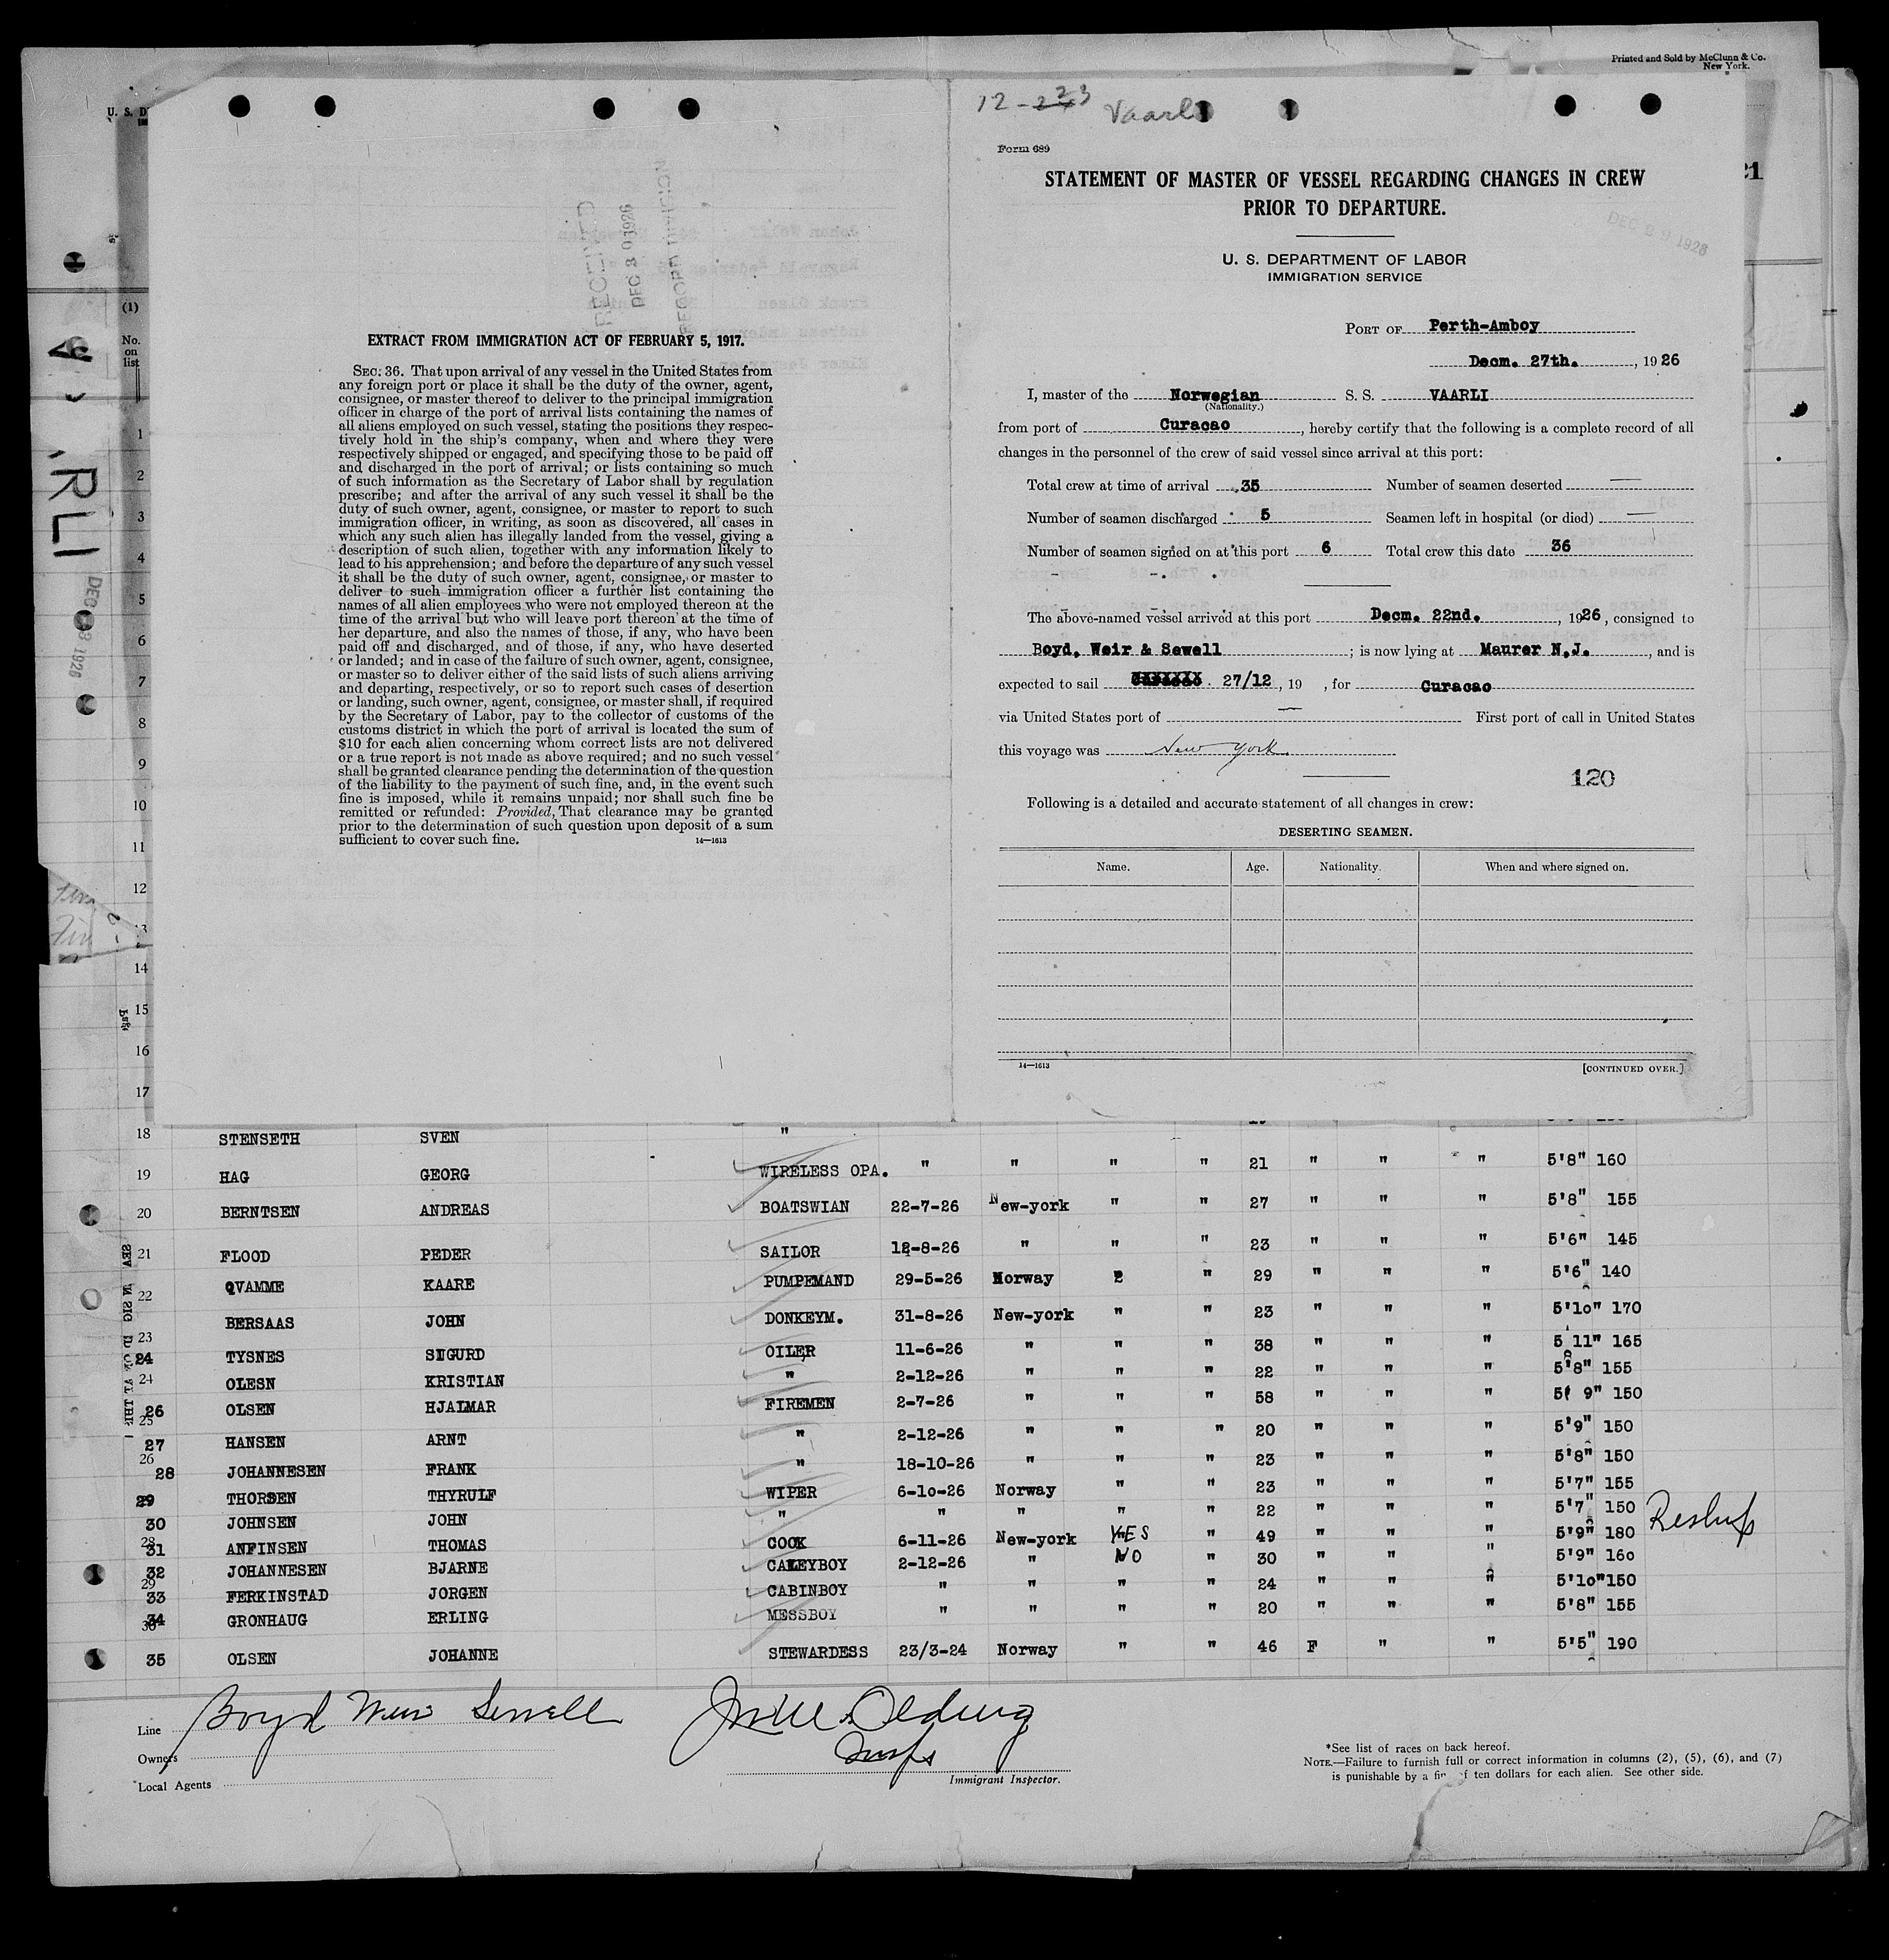 Printed and Sold by McClunn & Co.
New York.
U. S. D
(1)
No.
on
list
EXTRACT FROM IMMIGRATION ACT OF FEBRUARY 5, 1917.
SEC. 36. That upon arrival of any vessel in the United States from
any foreign port or place it shall be the duty of the owner, agent,
consignee, or master thereof to deliver to the principal immigration
officer in charge of the port of arrival lists containing the names of
all aliens employed on such vessel, stating the positions they respec-
tively hold in the ship's company, when and where they were
respectively shipped or engaged, and specifying those to be paid off
and discharged in the port of arrival; or lists containing so much
of such information as the Secretary of Labor shall by regulation
prescribe; and after the arrival of any such vessel it shall be the
duty of such owner, agent, consignee, or master to report to such
immigration officer, in writing, as soon as discovered, all cases in
which any such alien has illegally landed from the vessel, giving a
description of such alien, together with any information likely to
lead to his apprehension; and before the departure of any such vessel
it shall be the duty of such owner, agent, consignee, or master to
deliver to such immigration officer a further list containing the
names of all alien employees who were not employed thereon at the
time of the arrival but who will leave port thereon at the time of
her departure, and also the names of those, if any, who have been
paid off and discharged, and of those, if any, who have deserted
or landed; and in case of the failure of such owner, agent, consignee,
or master so to deliver either of the said lists of such aliens arriving
and departing, respectively, or so to report such cases of desertion
or landing, such owner, agent, consignee, or master shall, if required
by the Secretary of Labor, pay to the collector of customs of the
customs district in which the port of arrival is located the sum of
$10 for each alien concerning whom correct lists are not delivered
or a true report is not made as above required; and no such vessel
shall be granted clearance pending the determination of the question
of the liability to the payment of such fine, and, in the event such
fine is imposed, while it remains unpaid; nor shall such fine be
remitted or refunded: Provided, That clearance may be granted
prior to the determination of such question upon deposit of a sum
sufficient to cover such fine.
14—1613
RECEIVED
DEC 30 1926
12-223 Vaarli
Form 689
STATEMENT OF MASTER OF VESSEL REGARDING CHANGES IN CREW
PRIOR TO DEPARTURE.
DEC 29 1926
U. S. DEPARTMENT OF LABOR
IMMIGRATION SERVICE
PORT OF Perth-Amboy
Decm. 27th., 1926
I, master of the Norwegian S. S. VAARLI
(Nationality.)
from port of Curacao, hereby certify that the following is a complete record of all
changes in the personnel of the crew of said vessel since arrival at this port:
Total crew at time of arrival 35 Number of seamen deserted —
Number of seamen discharged 5 Seamen left in hospital (or died) —
Number of seamen signed on at this port 6 Total crew this date 36
The above-named vessel arrived at this port Decm. 22nd., 1926, consigned to
Boyd, Weir & Sewell; is now lying at Maurer N.J., and is
expected to sail 27/12, 19 , for Curacao
via United States port of — First port of call in United States
this voyage was New York
120
Following is a detailed and accurate statement of all changes in crew:
DESERTING SEAMEN.
Name. Age. Nationality. When and where signed on.
14—1613 [CONTINUED OVER.]
21
RLI
DEC 23 1926
1
2
3
4
5
6
7
8
9
10
11
12
13
14
15
16
17
18 STENSETH SVEN "
19 HAG GEORG WIRELESS OPA. " " " " 21 " " " 5'8" 160
20 BERNTSEN ANDREAS BOATSWIAN 22-7-26 New-york " " 27 " " " 5'8" 155
21 FLOOD PEDER SAILOR 18-8-26 " " " 23 " " " 5'6" 145
22 QVAMME KAARE PUMPEMAND 29-5-26 Norway 2 " 29 " " " 5'6" 140
23 BERSAAS JOHN DONKEYM. 31-8-26 New-york " " 23 " " " 5'10" 170
24 TYSNES SIGURD OILER 11-6-26 " " " 38 " " " 5 11" 165
24 OLESN KRISTIAN " 2-12-26 " " " 22 " " " 5'8" 155
26 25 OLSEN HJALMAR FIREMEN 2-7-26 " " " 58 " " " 5' 9" 150
27 26 HANSEN ARNT " 2-12-26 " " " 20 " " " 5'9" 150
28 JOHANNESEN FRANK " 18-10-26 " " " 23 " " " 5'8" 150
29 THORSEN THYRULF WIPER 6-10-26 Norway " " 23 " " " 5'7" 155
30 JOHNSEN JOHN " " " " " 22 " " " 5'7" 150
28 31 ANFINSEN THOMAS COOK 6-11-26 New-york YES " 49 " " " 5'9" 180 Reship
32 JOHANNESEN BJARNE CALEYBOY 2-12-26 " NO " 30 " " " 5'9" 160
29 33 FERKINSTAD JORGEN CABINBOY " " " " 24 " " " 5'10" 150
34 30 GRONHAUG ERLING MESSBOY " " " " 20 " " " 5'8" 155
35 OLSEN JOHANNE STEWARDESS 23/3-24 Norway " " 46 F " " 5'5" 190
Line Boyd Weir Sewell
Owners
Local Agents
Immigrant Inspector.
*See list of races on back hereof.
NOTE.—Failure to furnish full or correct information in columns (2), (5), (6), and (7)
is punishable by a fin of ten dollars for each alien. See other side.